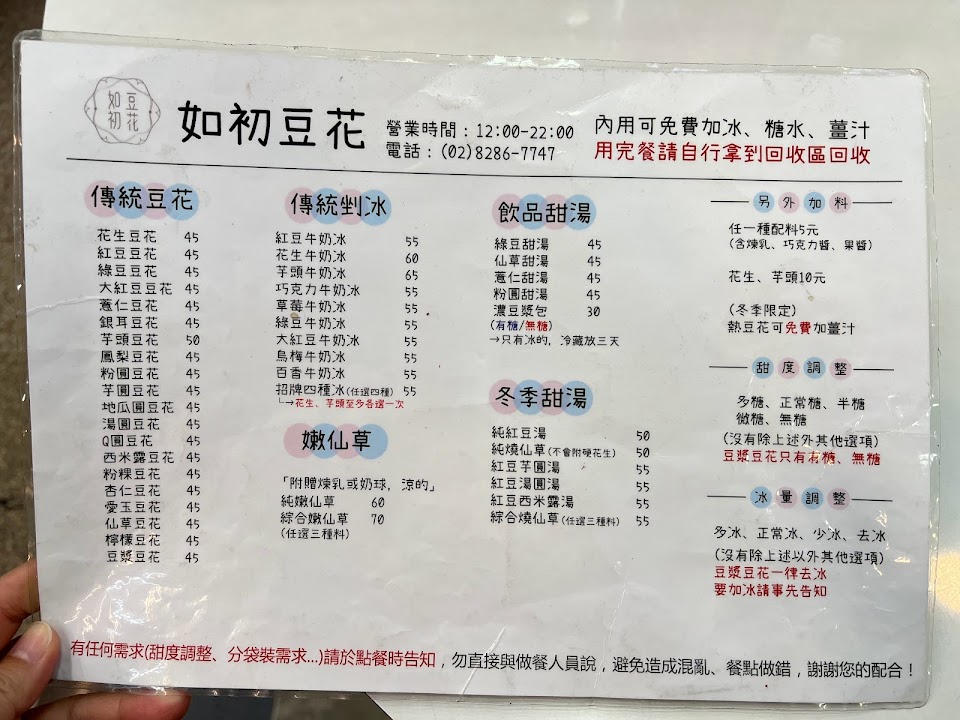 如初豆花
如初豆花
營業時間：12:00-22:00
電話：(02)8286-7747
內用可免費加冰、糖水、薑汁
用完餐請自行拿到回收區回收
傳統豆花
花生豆花 45
紅豆豆花 45
綠豆豆花 45
大紅豆豆花 45
薏仁豆花 45
銀耳豆花 45
芋頭豆花 50
鳳梨豆花 45
粉圓豆花 45
芋圓豆花 45
地瓜圓豆花 45
湯圓豆花 45
Q圓豆花 45
西米露豆花 45
粉粿豆花 45
杏仁豆花 45
愛玉豆花 45
仙草豆花 45
檸檬豆花 45
豆漿豆花 45
傳統剉冰
紅豆牛奶冰 55
花生牛奶冰 60
芋頭牛奶冰 65
巧克力牛奶冰 55
草莓牛奶冰 55
綠豆牛奶冰 55
大紅豆牛奶冰 55
烏梅牛奶冰 55
百香牛奶冰 55
招牌四種冰(任選四種) 55
→花生、芋頭至多各選一次
嫩仙草
「附贈煉乳或奶球，涼的」
純嫩仙草 60
綜合嫩仙草 70
(任選三種料)
飲品甜湯
綠豆甜湯 45
仙草甜湯 45
薏仁甜湯 45
粉圓甜湯 45
濃豆漿包 30
(有糖/無糖)
→只有冰的，冷藏放三天
冬季甜湯
純紅豆湯 50
純燒仙草(不會附硬花生) 50
紅豆芋圓湯 55
紅豆湯圓湯 55
紅豆西米露湯 55
綜合燒仙草(任選三種料) 55
另外加料
任一種配料5元
(含煉乳、巧克力醬、果醬)
花生、芋頭10元
(冬季限定)
熱豆花可免費加薑汁
甜度調整
多糖、正常糖、半糖
微糖、無糖
(沒有除上述外其他選項)
豆漿豆花只有有糖、無糖
冰量調整
多冰、正常冰、少冰、去冰
(沒有除上述以外其他選項)
豆漿豆花一律去冰
要加冰請事先告知
有任何需求(甜度調整、分袋裝需求...)請於點餐時告知，勿直接與做餐人員說，避免造成混亂、餐點做錯，謝謝您的配合！